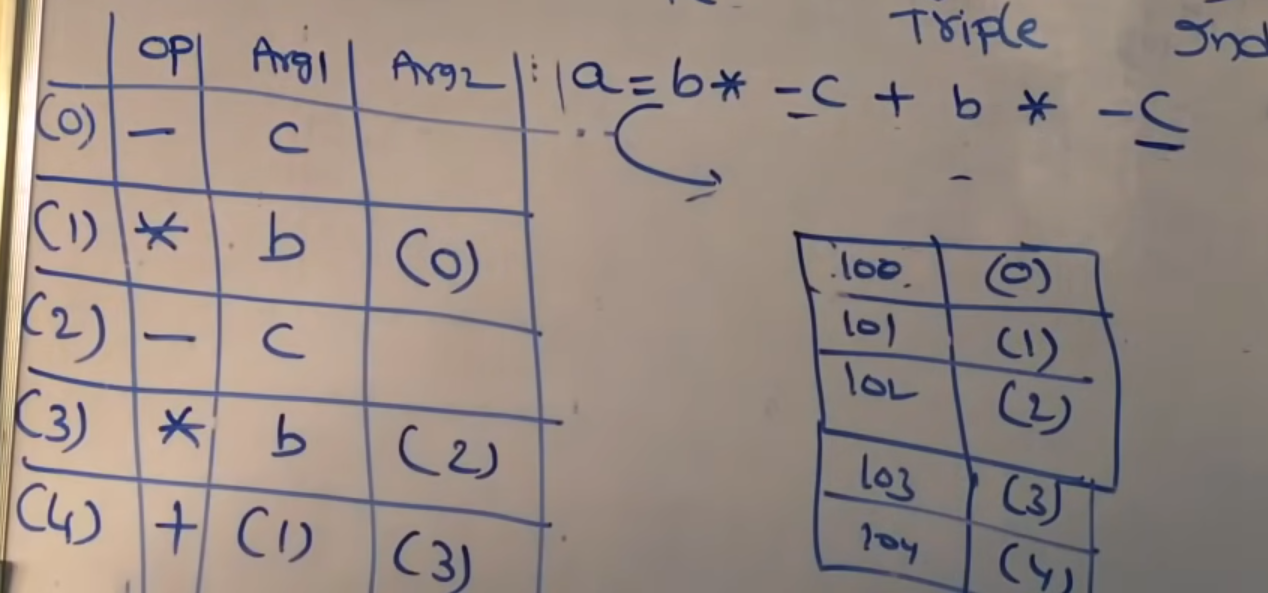 Triple Ind
a = b * -c + b * -c
OP Arg1 Arg2
(0) - c
(1) * b (0)
(2) - c
(3) * b (2)
(4) + (1) (3)
100 (0)
101 (1)
102 (2)
103 (3)
104 (4)